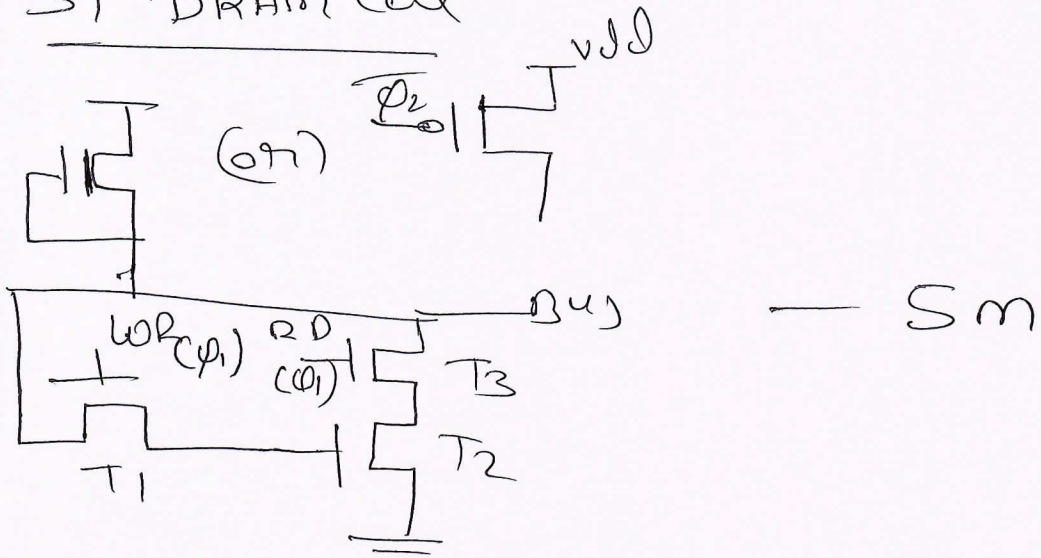 3T DRAM Cell
vdd
φ̅2
(or)
Bus
5m
WR(φ1)
RD
(φ1)
T3
T1
T2